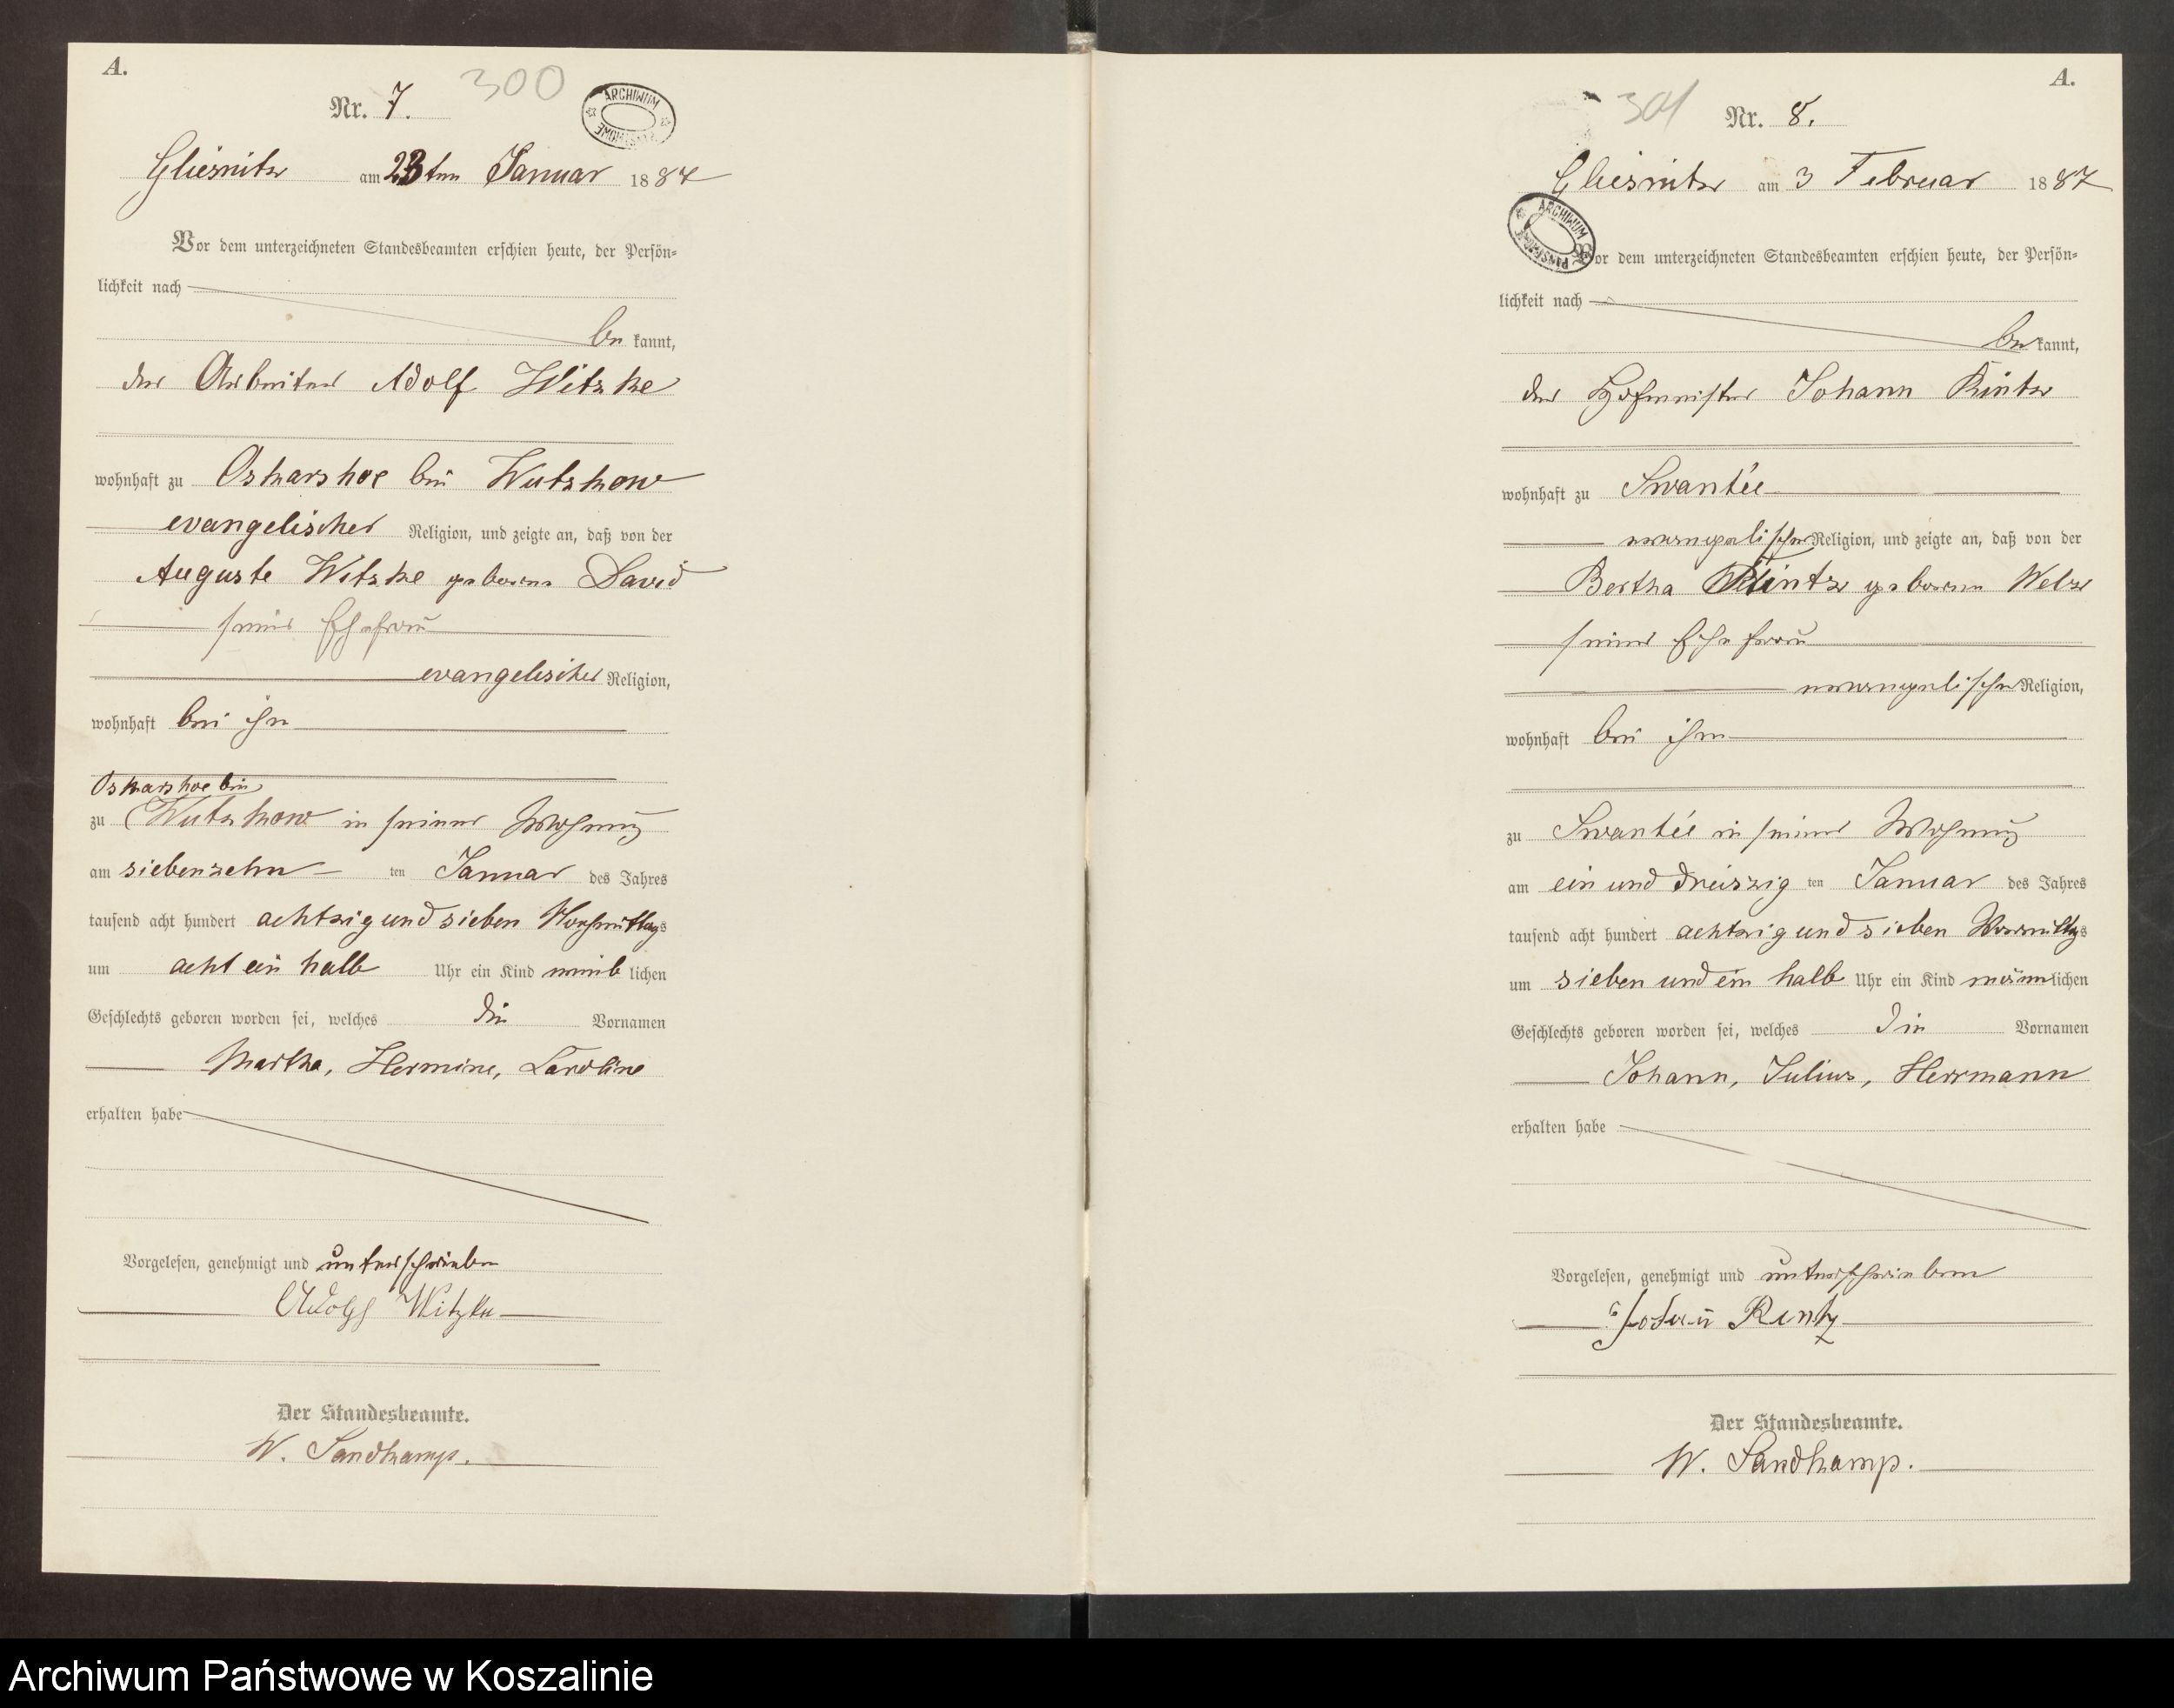 A.
300
Nr. 7.
ARCHIWUM
Gliesnitz am 23ten Januar 1887
Vor dem unterzeichneten Standesbeamten erschien heute, der Persön-
lichkeit nach
be kannt,
der Arbeiter Adolf Witzke
wohnhaft zu Oskarshoe bei Wutzkow
evangelischer Religion, und zeigte an, daß von der
Auguste Witzke geborne David
seiner Ehefrau
evangelischer Religion,
wohnhaft bei ihm
Oskarshoe bei
zu Wutzkow in seiner Wohnung
am siebenzehn ten Januar des Jahres
tausend acht hundert achtzig und sieben
um acht ein halb Uhr ein Kind weib lichen
Geschlechts geboren worden sei, welches die Vornamen
Martha, Hermine, Caroline
erhalten habe
Vorgelesen, genehmigt und unterschrieben
Adolf Witzke
Der Standesbeamte.
W. Sandkamp.
A.
301
Nr. 8.
Gliesnitz am 3 Februar 1887
ARCHIWUM PAŃSTWOWE
Vor dem unterzeichneten Standesbeamten erschien heute, der Persön-
lichkeit nach
be kannt,
der Hofmeister Johann Rintz
wohnhaft zu Swantée
evangelischer Religion, und zeigte an, daß von der
Bertha Rintz geborene Welz
seiner Ehefrau
evangelischer Religion,
wohnhaft bei ihm
zu Swantée in seiner Wohnung
am ein und dreiszig ten Januar des Jahres
tausend acht hundert achtzig und sieben Vormittags
um sieben und ein halb Uhr ein Kind männlichen
Geschlechts geboren worden sei, welches die Vornamen
Johann, Julius, Herrmann
erhalten habe
Vorgelesen, genehmigt und unterschrieben
Johann Rintz
Der Standesbeamte.
W. Sandkamp.
Archiwum Państwowe w Koszalinie